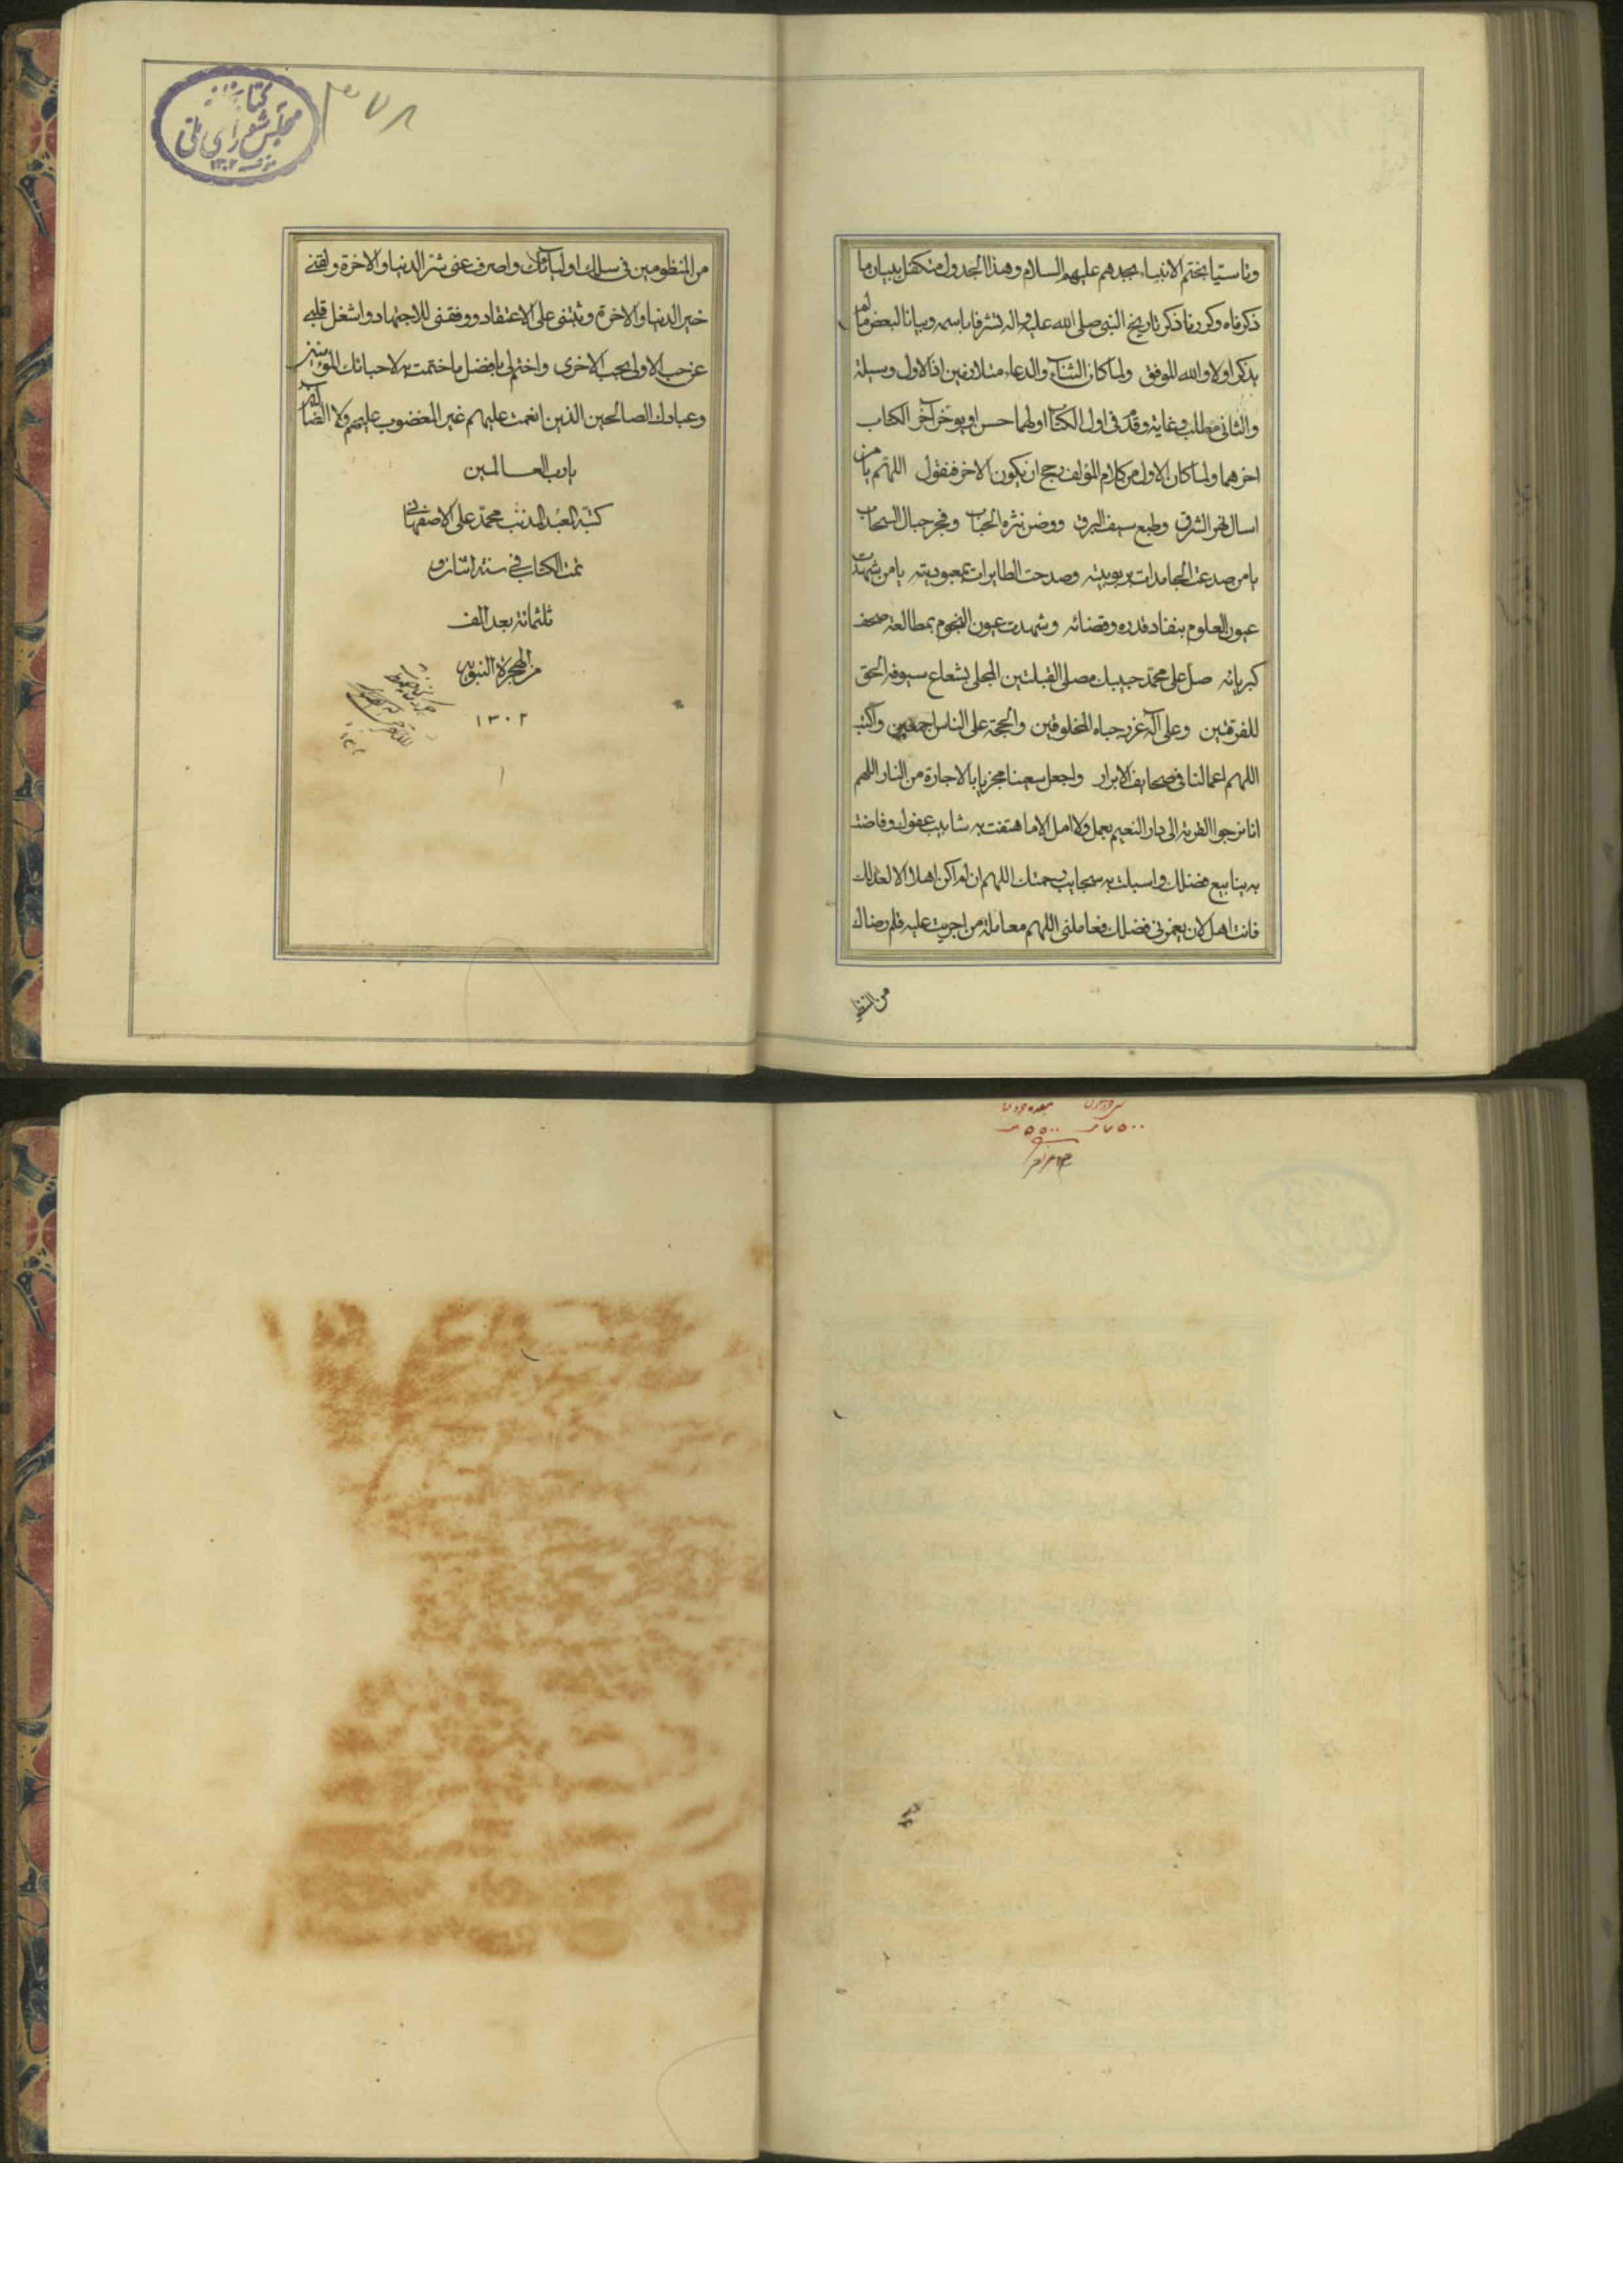 وتاسيا بختم الانبياء بجدهم عليهم السلام وهذا الجدول متكفل ببيان ما
ذكرناه وكررنا ذكر تاريخ النبي صلى الله عليه واله تشرفا باسمه وبيانا لبعض ما لم
يذكر اولا والله الموفق ولما كان الثناء والدعاء متلازمين اذ الاول وسيلة
والثاني مطلب وغاية وقدم في اول الكتاب اولهما حسن او يوخر آخر الكتاب
اخرهما ولما كان الاول من كلام المؤلف رجح ان يكون الاخر فنقول اللهم يا من
اسال نهر الشرق وطبع سيف البرق ووضن نثره الحباب وفجر جبال السحاب
يا من صدعت الجامدات بربوبيته وصدحت الطايرات بمعبوديته يا من شهدت
عيون العلوم بنفاد قدره وقضائه وشهدت عيون النجوم بمطالعة صحف
كبريائه صل على محمد حبيبك مصلى القبلتين المجلى بشعاع سيوفه الحق
للفرقتين وعلى آله غرر جباه المخلوقين والحجة على الناس اجمعين واكتب
اللهم اعمالنا في صحايف الابرار واجعل سعينا مجزيا بالاجارة من النار اللهم
انا نرجوا القربة الى دار النعيم بعمل ولا امل الا ما هتفت به شابيب عفوك وفاضت
به ينابيع فضلك واسبلت به سحايب رحمتك اللهم ان لم اكن اهلا الا لعدلك
فانت اهل لان يغمرني فضلك فعاملني اللهم معاملة من اجريت عليه قلم رضاك
كتابخانه
مجلس شوراى ملى
١٣٠٢
٣٧٨
من المنظومين في سلك اوليائك واصرف عني شر الدنيا والاخرة ولقني
خير الدنيا والاخرة وثبتني على الاعتقاد ووفقني للاجتهاد واشغل قلبي
عن حب الاولى بحب الاخرى واختم لي بافضل ما ختمت به لاحبائك المؤمنين
وعبادك الصالحين الذين انعمت عليهم غير المغضوب عليهم ولا الضالين
يا رب العالمين
كتبه العبد المذنب محمد على الاصفهانى
تمت الكتاب في سنة اثنان و
ثلثمائة بعد الف
من الهجرة النبوية
١٣٠٢
٧٥٠٠
٥٥٠٠